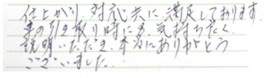 仕上がり、対応共に満足しております。
車の引き取り時にも気持ちよく
説明いただき本当にありがとう
ございました。